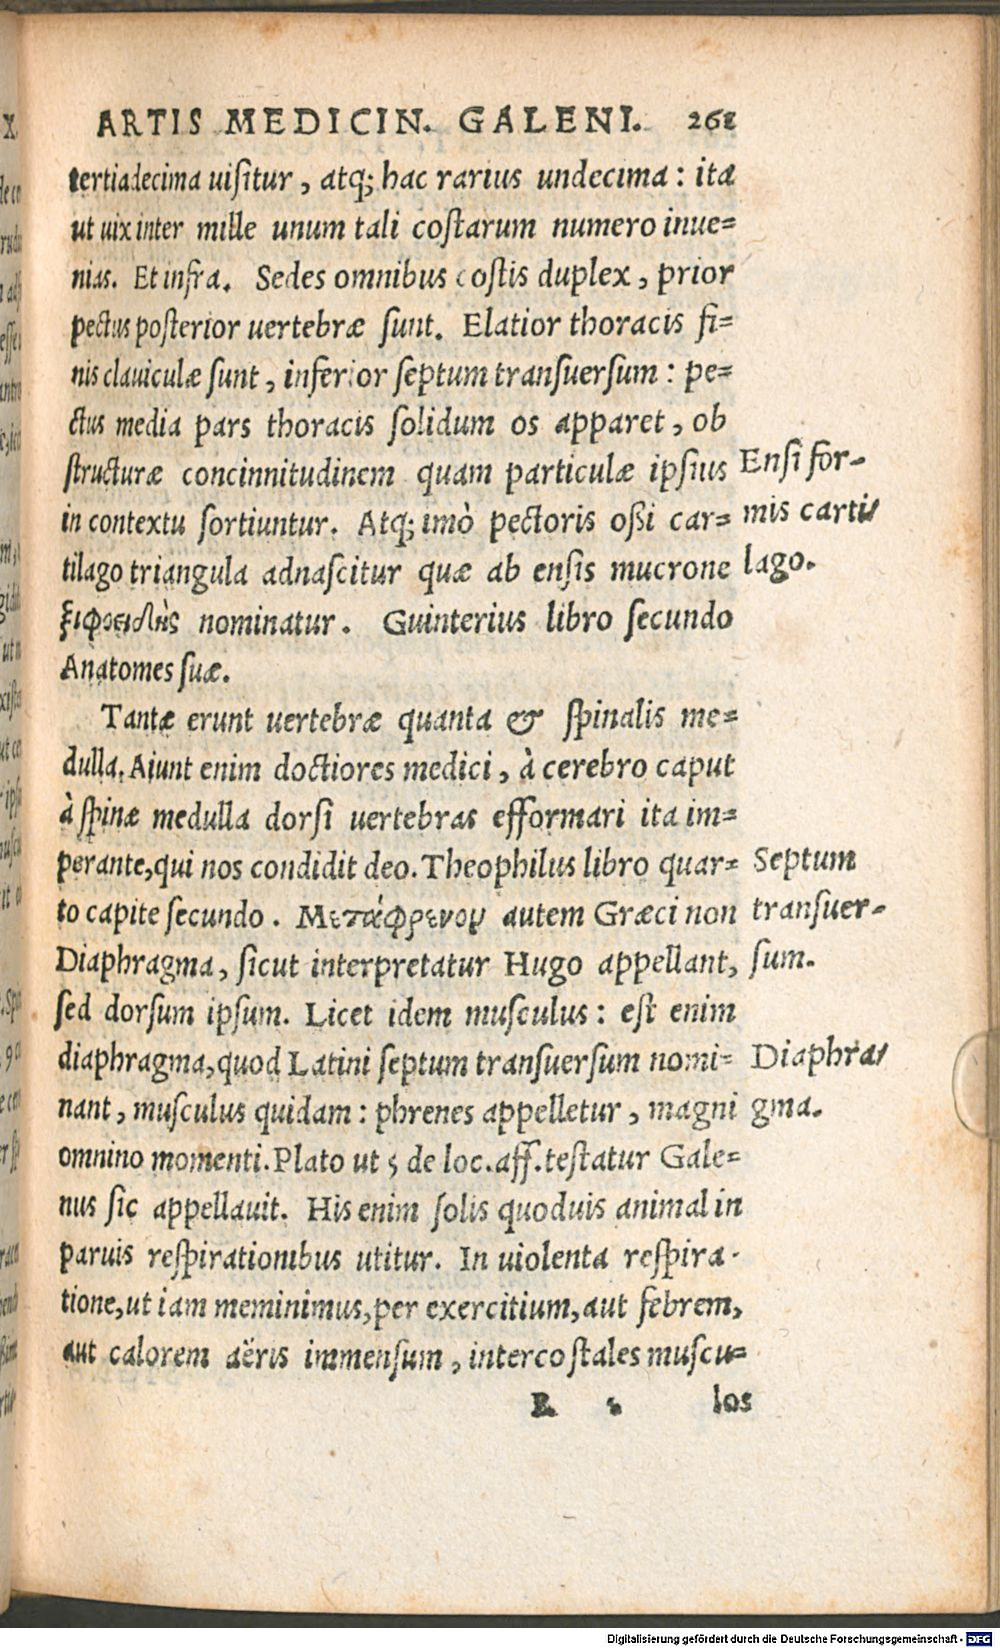 ARTIS MEDICIN. GALENI. 261
tertiadecima uisitur, atq; hac rarius undecima: ita
ut uix inter mille unum tali costarum numero inue=
nias. Et infra. Sedes omnibus costis duplex, prior
pectus posterior uertebræ sunt. Elatior thoracis fi=
nis clauiculæ sunt, inferior septum transuersum: pe=
ctus media pars thoracis solidum os apparet, ob
structuræ concinnitudinem quam particulæ ipsius
in contextu sortiuntur. Atq; imò pectoris oßi car=
tilago triangula adnascitur quæ ab ensis mucrone
ξιφοειδὴς nominatur. Guinterius libro secundo
Anatomes suæ.
Ensi for-
mis carti
lago.
Tantæ erunt uertebræ quanta & spinalis me=
dulla. Aiunt enim doctiores medici, à cerebro caput
à spinæ medulla dorsi uertebras efformari ita im=
perante, qui nos condidit deo. Theophilus libro quar=
to capite secundo. Μετάφρενον autem Græci non
Diaphragma, sicut interpretatur Hugo appellant,
sed dorsum ipsum. Licet idem musculus: est enim
diaphragma, quod Latini septum transuersum nomi=
nant, musculus quidam: phrenes appelletur, magni
omnino momenti. Plato ut 5 de loc. aff. testatur Gale=
nus sic appellauit. His enim solis quoduis animal in
paruis respirationibus utitur. In uiolenta respira-
tione, ut iam meminimus, per exercitium, aut febrem,
aut calorem aëris immensum, intercostales muscu=
Septum
transuer-
sum.
Diaphra
gma.
R los
Digitalisierung gefördert durch die Deutsche Forschungsgemeinschaft - DFG